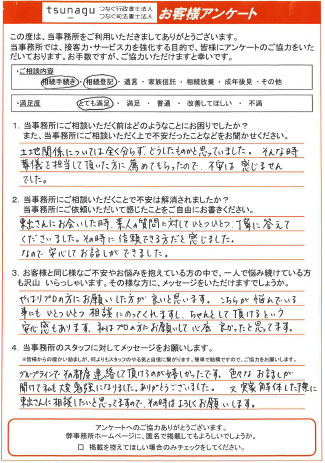 tsunagu つなぐ行政書士法人
つなぐ司法書士法人 お客様アンケート
この度は、当事務所をご利用いただきましてありがとうございます。
当事務所では、接客力・サービス力を強化する目的で、皆様にアンケートのご協力をいた
だいております。お手数ですが、ご協力いただけますと幸いです。
・ご相談内容
相続手続き・相続登記・遺言・家族信託・相続放棄・成年後見・その他
・満足度 とても満足・満足・普通・改善してほしい・不満
1. 当事務所にご相談いただく前はどのようなことにお困りでしたか?
また、当事務所ご相談いただく上で不安だったことなどをお聞かせください。
土地関係については全く分らず、どうしたものかと思っていました。そんな時
葬儀を担当して頂いた方に薦めてもらったので、不安は感じません
でした。
2. 当事務所にご相談いただくことで不安は解消されましたか?
当事務所にご依頼いただいて感じたことをご自由にお書きください。
にお会いした時、素人の質問に対してひとつひとつ、丁寧に答えて
くださいました。その時に信頼できる方だと感じました。
なので安心してお話しができました。
3. お客様と同様なご不安やお悩みを抱えている方の中で、一人で悩み続けている方
も沢山いらっしゃいます。その様な方に、メッセージをいただけますでしょうか。
やはりプロの方にお願いした方が良いと思います。こちらが悩んでいる
事にもひとつひとつ相談にのってくれますし、ちゃんとして頂けるという
安心感もあります。私はプロの方にお願いして心底良かったと思ってます。
4. 当事務所のスタッフに対してメッセージをお願いします。
※皆様からの暖かい励ましが、何よりもスタッフのやる気と自信に繋がります。簡単で結構ですので、ご協力をお願いします。
グループラインでその都度連絡して頂けるのが嬉しかったです。色々なお話しが
聞けて私も大変勉強になりました。ありがとうございました。又、実家解体した際に
さんに相談したいと思ってますので、その時はよろしくお願いします。
アンケートへのご協力ありがとうございます。
弊事務所ホームページに、匿名で掲載してもよろしいでしょうか。
□ 掲載を控えてほしい場合のみチェックをしてください。